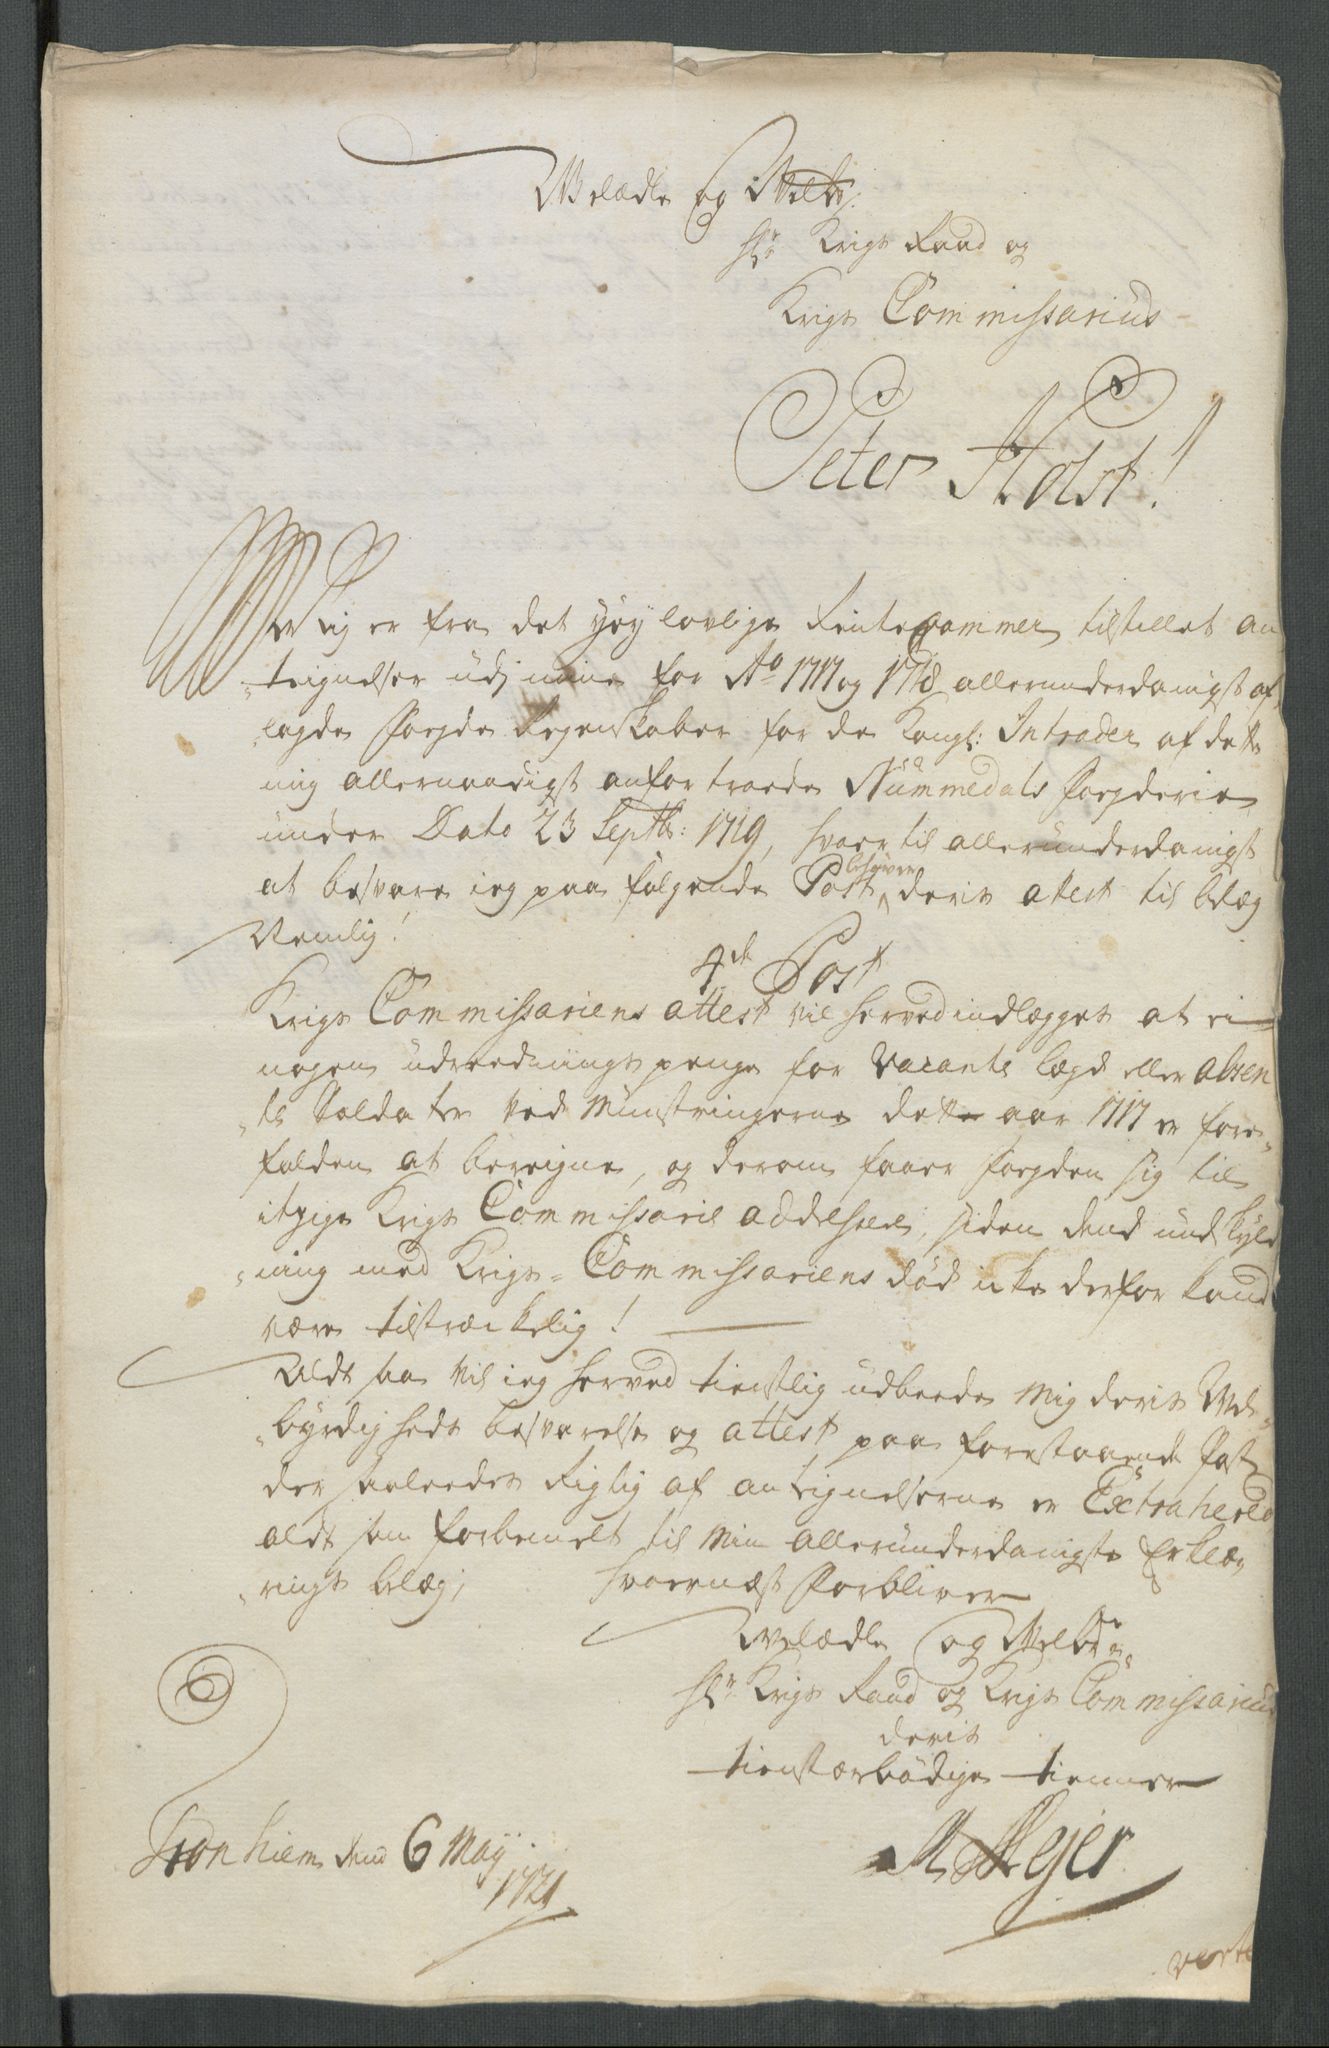 Welædle og Welb:
Hr Krigs Raad og
Krigs Commissarius
Peter Holst!
Mig er fra det höy lovlige Rentecammer tilstillet an
tegnelser udj mine for Ao 1717 og 1718 allerunderdanigst af
lagde Fogde Regenskaber for de Kongl: Intrader af dette
mig allernaadigst anfortroede Nummedals Fogderie
under Dato 23 Septbr: 1719, hvor til allerunderdanigst
at besvare ieg paa følgende Post begiærer deris attest til belæg
Nemlig!
4de Post
Krigs Commissariens attest vil herved indlægges at ei
nogen udreednings penge for vacante lægd eller absen
te Soldater ved Munstringerne dette aar 1717 er fore
falden at beregne, og derom faaer fogden sig til
itzige Krigs Commissarie addressere, siden dend undskyld
ning med Krigs-Commissariens död icke derfor kand
være tilstreckelig!
Aldt saa vil ieg herved tienstlig udbeede mig deris Wel
byrdigheds besvarelse og attest paa forestaaende Post
der saaleedes Rigtig af antegnelserne er Extraherit
aldt som forbemelt til min allerunderdanigste Erklæ
rings belæg; hvornæst forbliver
Welædle og Welbr:
Hr Krigs Raad og Krigs Commissarius
deris
tienstærbödige tienner
Tronhiem dend 6 May
1721
Mejer
verte